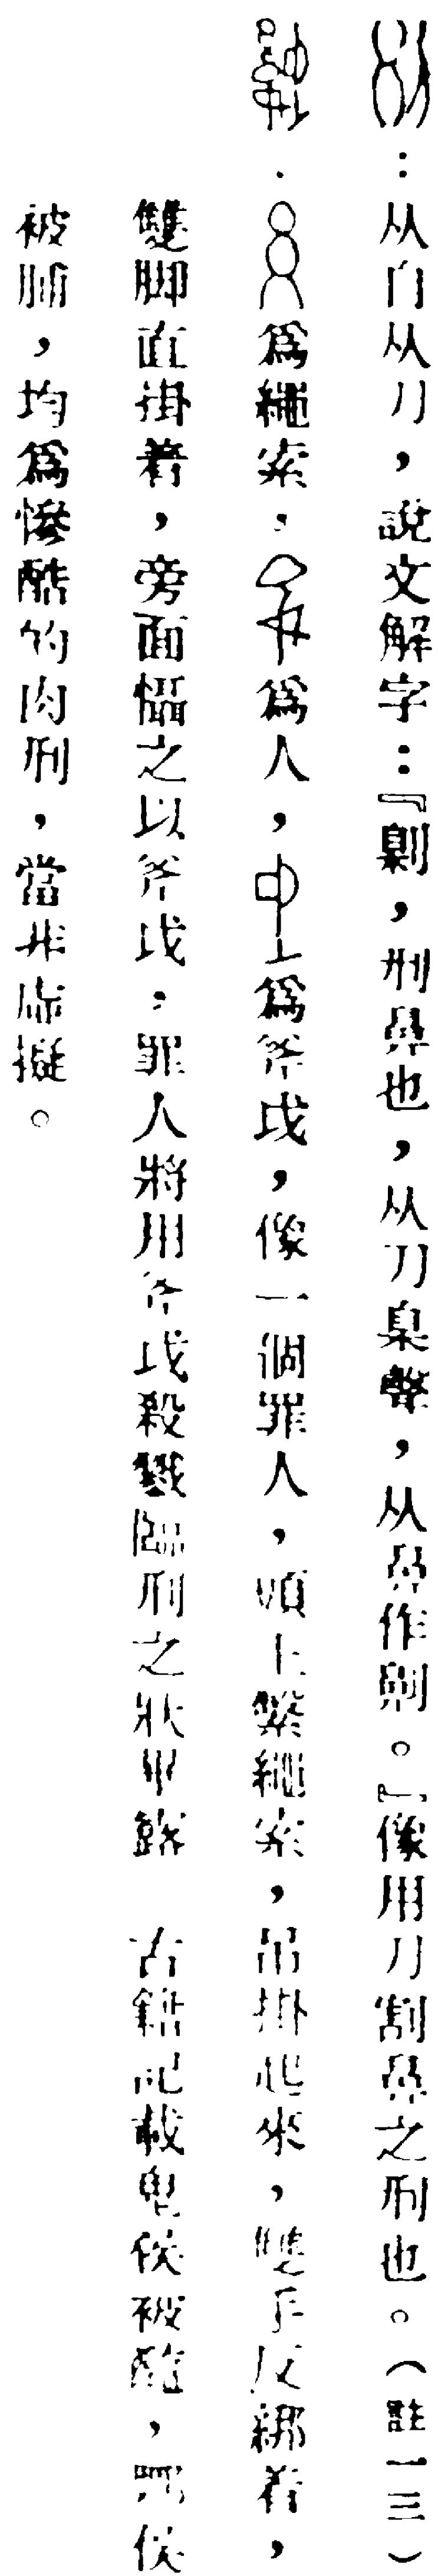 ：从自从刀，說文解字：『劓，刑鼻也，从刀臬聲，从鼻作劓。』像用刀割鼻之刑也。（註一三）
．為繩索，為人，為斧戉，像一個罪人，頸上繫繩索，吊掛起來，雙手反綁着，
雙脚直掛着，旁面懾之以斧戉，罪人將用斧戉殺戮臨刑之狀畢露　古籍記載鬼侯被醢，鄂侯
被脯，均為慘酷的肉刑，當非虛擬。